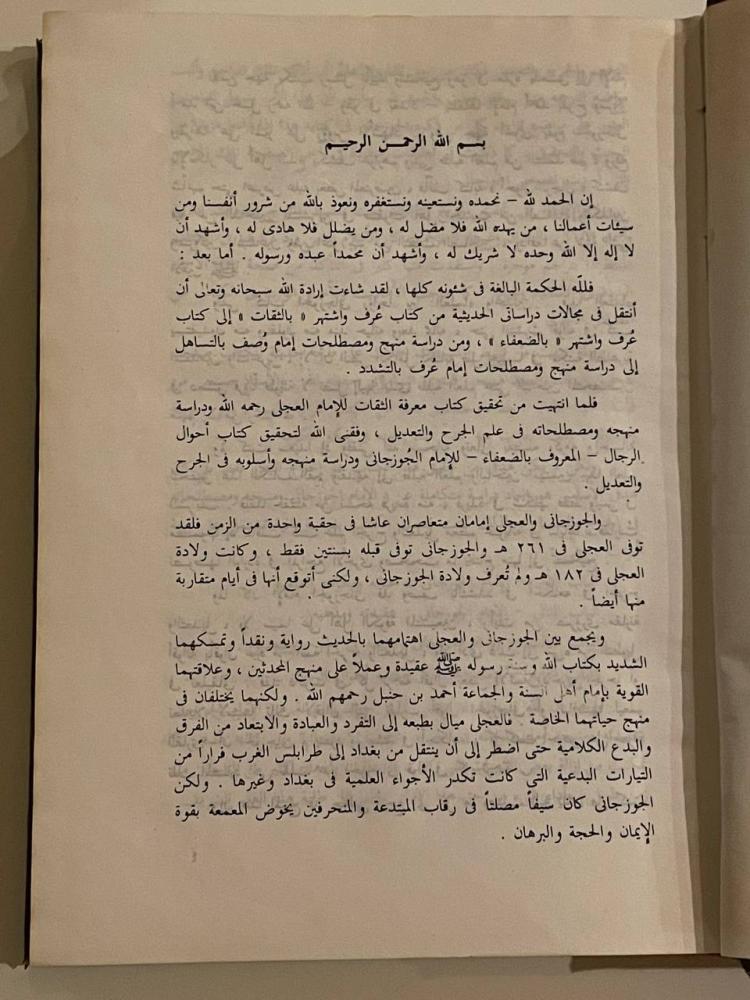 بسم الله الرحمن الرحيم
إن الحمد لله – نحمده ونستعينه ونستغفره ونعوذ بالله من شرور أنفسنا ومن
سيئات أعمالنا ، من يهده الله فلا مضل له ، ومن يضلل فلا هادى له ، وأشهد أن
لا إله إلا الله وحده لا شريك له ، وأشهد أن محمداً عبده ورسوله . أما بعد :
فلله الحكمة البالغة فى شئونه كلها ، لقد شاءت إرادة الله سبحانه وتعالى أن
أنتقل فى مجالات دراساتى الحديثية من كتاب عُرف واشتهر « بالثقات » إلى كتاب
عُرف واشتهر « بالضعفاء » ، ومن دراسة منهج ومصطلحات إمام وُصف بالتساهل
إلى دراسة منهج ومصطلحات إمام عُرف بالتشدد .
فلما انتهيت من تحقيق كتاب معرفة الثقات للإمام العجلى رحمه الله ودراسة
منهجه ومصطلحاته فى علم الجرح والتعديل ، وفقنى الله لتحقيق كتاب أحوال
الرجال – المعروف بالضعفاء – للإمام الجُوزجانى ودراسة منهجه وأسلوبه فى الجرح
والتعديل .
والجوزجانى والعجلى إمامان متعاصران عاشا فى حقبة واحدة من الزمن فلقد
توفى العجلى فى ٢٦١ هـ والجوزجانى توفى قبله بسنتين فقط ، وكانت ولادة
العجلى فى ١٨٢ هـ ولم تُعرف ولادة الجوزجانى ، ولكنى أتوقع أنها فى أيام متقاربة
منها أيضاً .
ويجمع بين الجوزجانى والعجلى اهتمامهما بالحديث رواية ونقداً وتمسكهما
الشديد بكتاب الله وسنة رسوله ﷺ عقيدة وعملاً على منهج المحدثين ، وعلاقتهما
القوية بإمام أهل السنة والجماعة أحمد بن حنبل رحمهم الله . ولكنهما يختلفان فى
منهج حياتهما الخاصة . فالعجلى ميال بطبعه إلى التفرد والعبادة والابتعاد من الفرق
والبدع الكلامية حتى اضطر إلى أن ينتقل من بغداد إلى طرابلس الغرب فراراً من
التيارات البدعية التى كانت تكدر الأجواء العلمية فى بغداد وغيرها . ولكن
الجوزجانى كان سيفاً مصلتاً فى رقاب المبتدعة والمنحرفين يخوض المعمعة بقوة
الإيمان والحجة والبرهان .